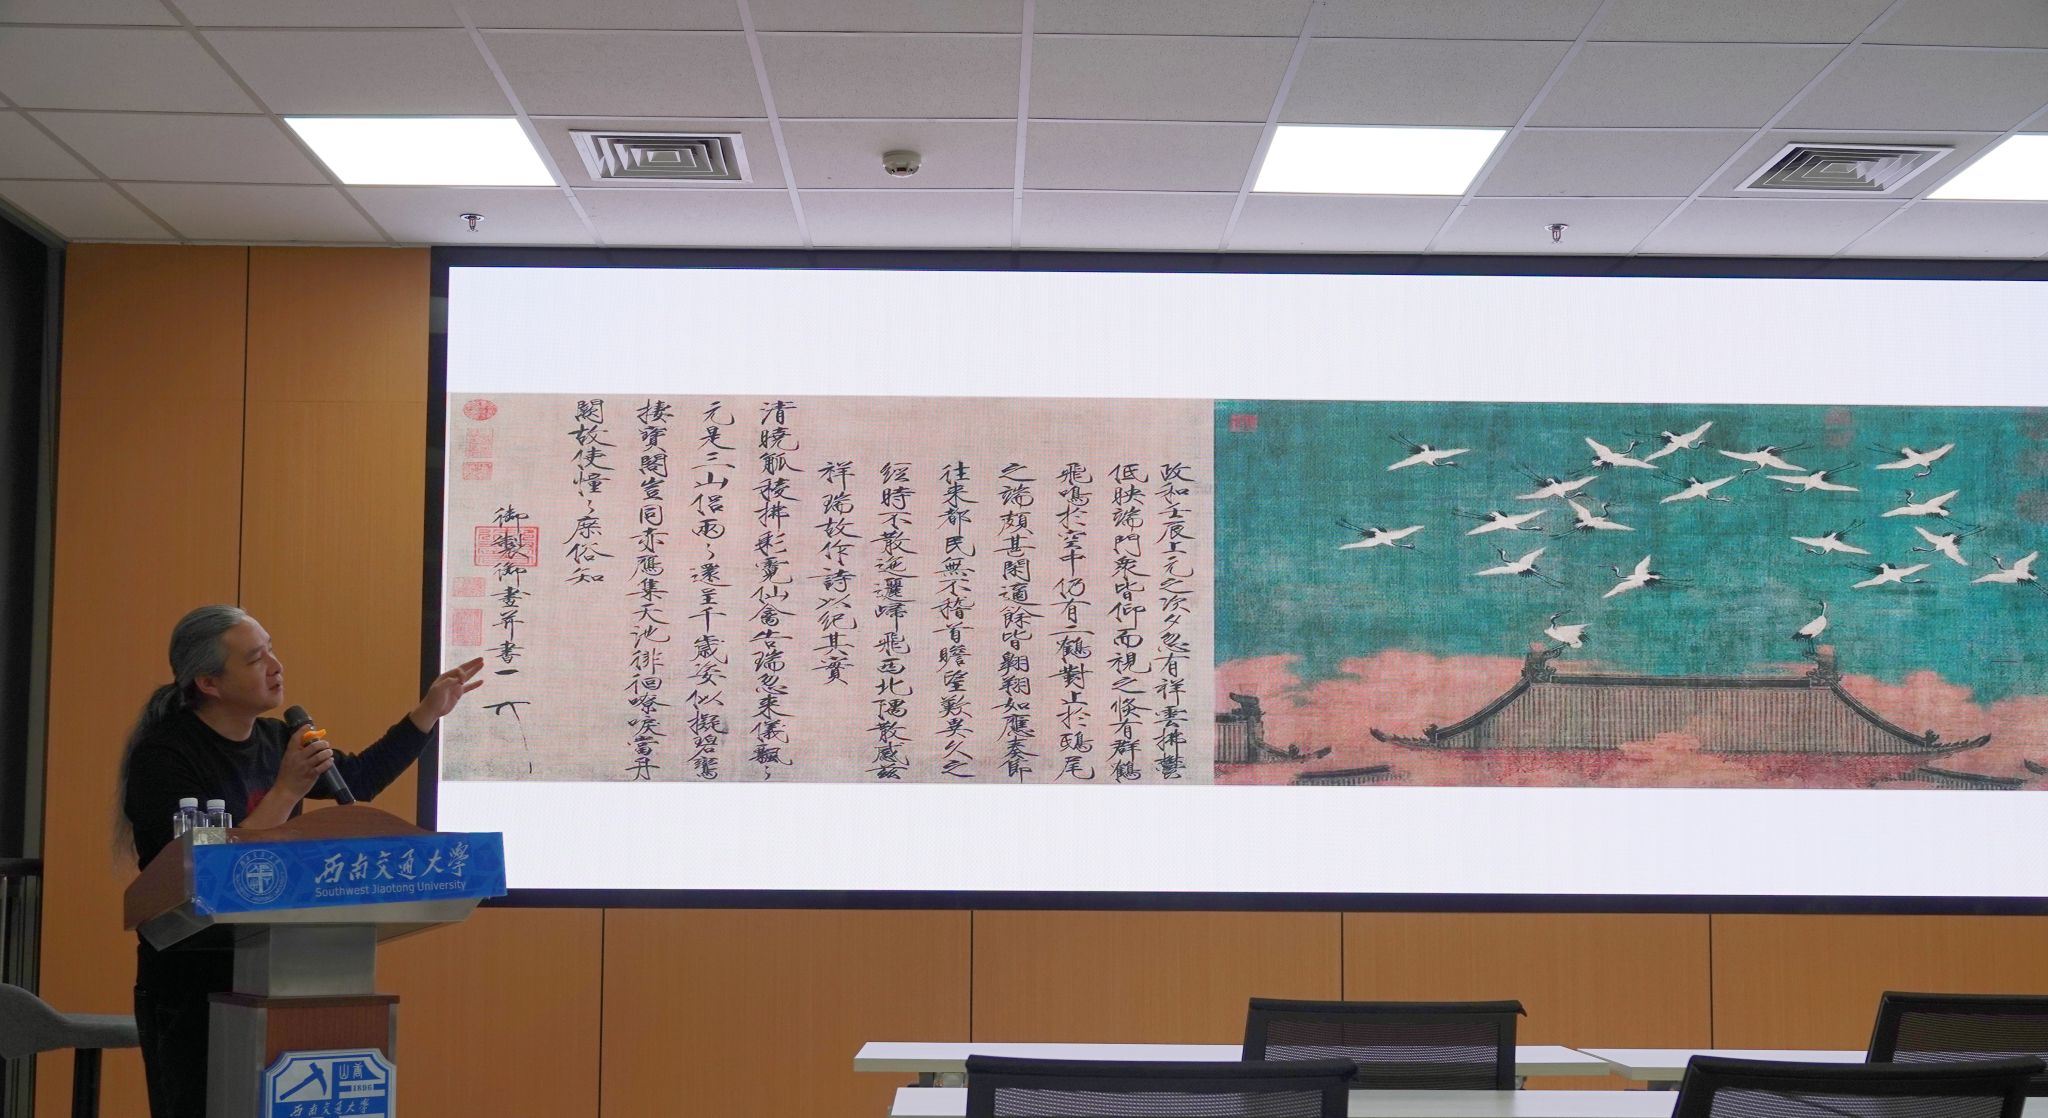 政和壬辰上元之次夕忽有祥雲拂鬱
低映端門眾皆仰而視之倏有群鶴
飛鳴於空中仍有二鶴對止於鴟尾
之端頗甚閑適餘皆翱翔如應奏節
往來都民無不稽首瞻望歎異久之
經時不散迤邐歸飛西北隅散感茲
祥瑞故作詩以紀其實
清曉觚稜拂彩霓仙禽告瑞忽來儀飄〻
元是三山侶兩〻還呈千歲姿似擬碧鸞
棲寶閣豈同赤鴈集天池徘徊嘹唳當丹
闕故使憧〻庶俗知
御製御畫并書
西南交通大學
Southwest Jiaotong University
唐山
1896
西南交通大學